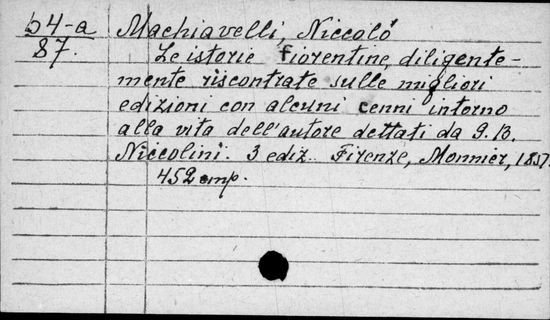 54-a
87.
Machiavelli, Niccoló
Le istorie fiorentine, diligente-
mente riscontrate sulle migliori
edizioni con alcuni cenni intorno
alla vita dell'autore dettati da G. B.
Niccolini. 3 ediz. Firenze, Monnier, 1857.
452 smp.